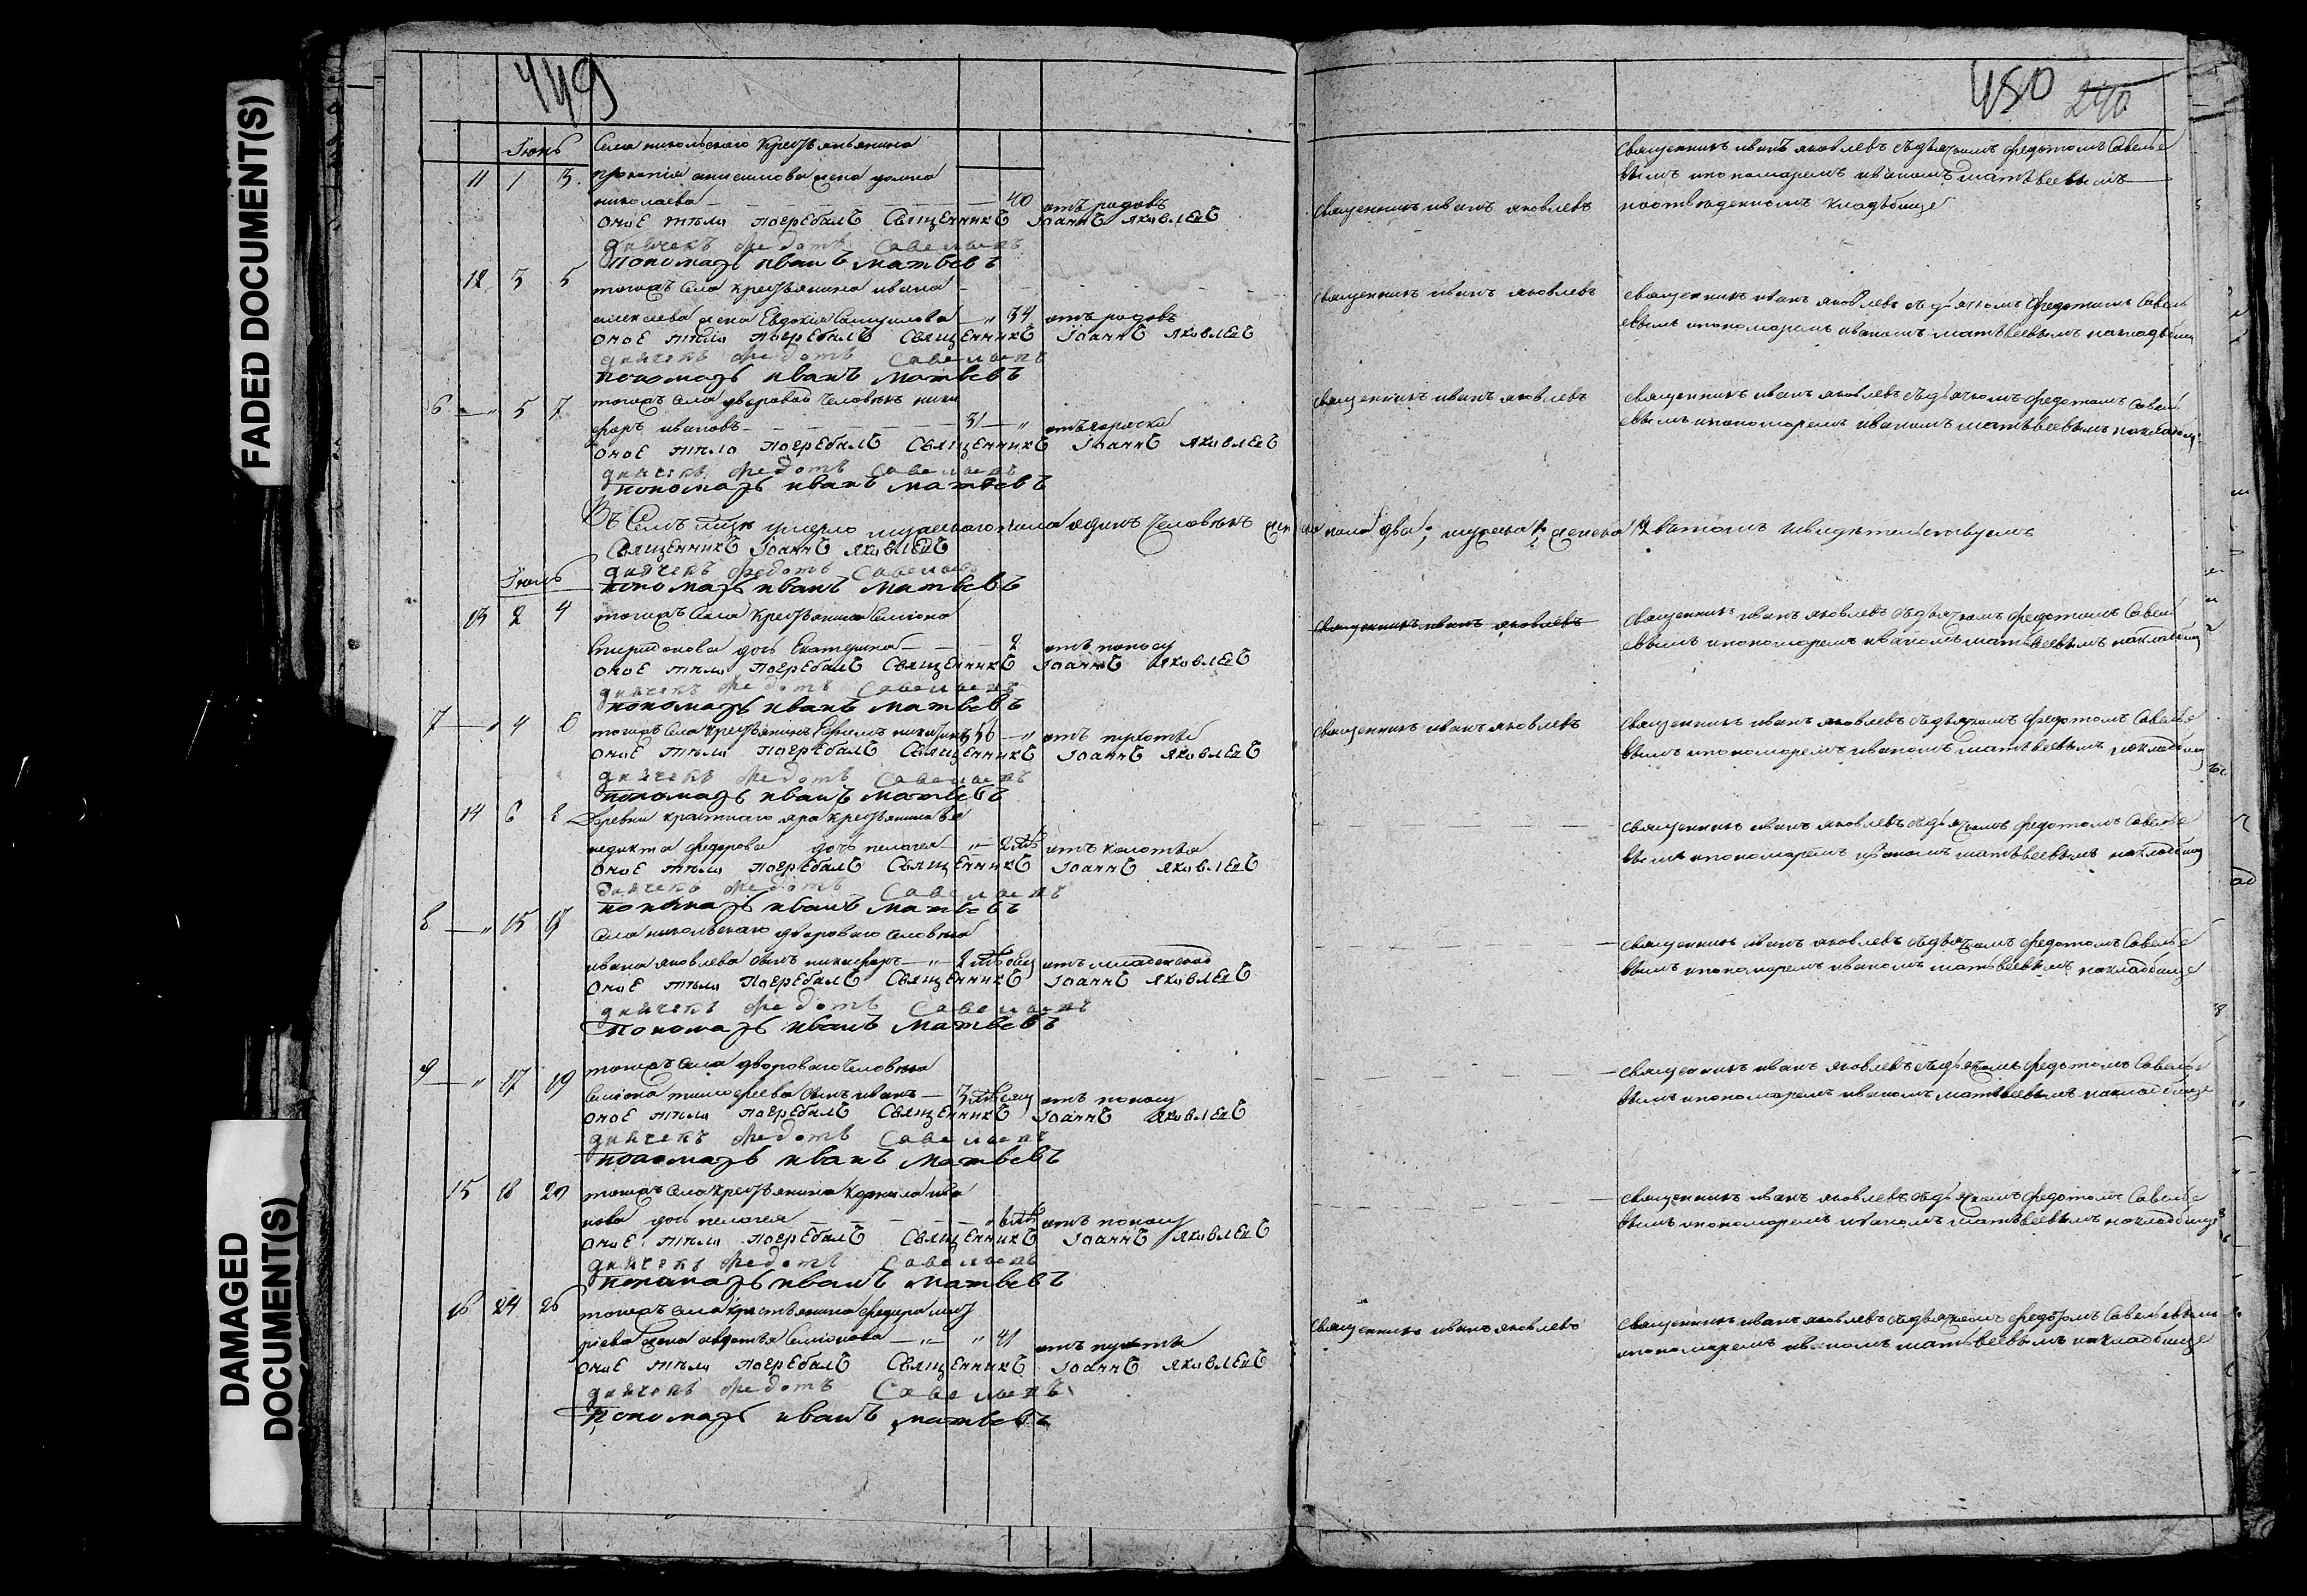 FADED DOCUMENT(S)
DAMAGED DOCUMENT(S)
449
Іюнь
Села никольскаго крестьянина
11 1 3 прокопія анисимова жена
николаева 40 отъ родовъ
оное тѣло погребалъ Священникъ Іоаннъ Яковлевъ
дьячекъ федотъ Савельевъ
Пономарь иванъ матвеевъ
12 3 5 тогожъ села крестьянина ивана
алексеева жена Евдокія Самуилова 34 отъ родовъ
оное тѣло погребалъ Священникъ Іоаннъ Яковлевъ
дьячекъ федотъ Савельевъ
пономарь иванъ матвеевъ
6 5 7 тогожъ села дворовой человѣкъ ники
форъ ивановъ 31 отъ горячки
оное тѣло погребалъ Священникъ Іоаннъ Яковлевъ
дьячекъ федотъ Савельевъ
пономарь иванъ матвеевъ
Въ Семъ умерло мужескаго пола единъ человѣкъ
Священникъ Іоаннъ Яковлевъ
дьячекъ федотъ Савельевъ
Іюль
пономарь иванъ матвеевъ
13 2 4 тогожъ села крестьянина Семіона
Спиридонова дочь Екатерина 2 отъ поносу
оное тѣло погребалъ Священникъ Іоаннъ Яковлевъ
дьячекъ федотъ Савельевъ
пономарь иванъ матвеевъ
7 4 6 тогожъ села крестьянинъ Ефремъ никитинъ 56 отъ чухотки
оное тѣло погребалъ Священникъ Іоаннъ Яковлевъ
дьячекъ федотъ Савельевъ
пономарь иванъ матвеевъ
14 6 8 Деревни яра крестьянина Ве
недикта федорова дочь пелагея 2 отъ колотья
оное тѣло погребалъ Священникъ Іоаннъ Яковлевъ
дьячекъ федотъ Савельевъ
пономарь иванъ матвеевъ
8 15 17 Села никольскаго двороваго человѣка
ивана яковлева сынъ никифоръ 2 отъ младенской
оное тѣло погребалъ Священникъ Іоаннъ Яковлевъ
дьячекъ федотъ Савельевъ
Пономарь иванъ матвеевъ
9 17 19 тогожъ села двороваго человѣка
Семіона тимофеева сынъ иванъ 3 отъ поносу
оное тѣло погребалъ Священникъ Іоаннъ Яковлевъ
дьячекъ федотъ Савельевъ
пономарь иванъ матвеевъ
15 18 20 тогожъ села крестьянина Корнила ива
нова дочь пелагея 6 отъ поносу
оное тѣло погребалъ Священникъ Іоаннъ Яковлевъ
дьячекъ федотъ Савельевъ
пономарь иванъ матвеевъ
16 24 26 тогожъ села крестьянина федора
жена авдотья Семіонова 41 отъ чухотки
оное тѣло погребалъ Священникъ Іоаннъ Яковлевъ
дьячекъ федотъ Савельевъ
Пономарь иванъ матвеевъ
450 240
священникъ иванъ яковлевъ съ дьячкомъ федотомъ Савелье
вымъ и пономаремъ иваномъ матвеевымъ
священникъ иванъ яковлевъ на отведенномъ кладбище
священникъ иванъ яковлевъ священникъ иванъ яковлевъ съ дьячкомъ федотомъ Савель
евымъ и пономаремъ иваномъ матвеевымъ на кладбище
священникъ иванъ яковлевъ священникъ иванъ яковлевъ съ дьячкомъ федотомъ Савель
евымъ и пономаремъ иваномъ матвеевымъ на кладбище
пола два; въ томъ и свидѣтельствуемъ
священникъ иванъ яковлевъ священникъ иванъ яковлевъ съ дьячкомъ федотомъ Савель
евымъ и пономаремъ иваномъ матвеевымъ на кладбище
священникъ иванъ яковлевъ священникъ иванъ яковлевъ съ дьячкомъ федотомъ Савелье
вымъ и пономаремъ иваномъ матвеевымъ на кладбище
священникъ иванъ яковлевъ съ дьячкомъ федотомъ Савелье
вымъ и пономаремъ иваномъ матвеевымъ на кладбище
священникъ иванъ яковлевъ съ дьячкомъ федотомъ Савелье
вымъ и пономаремъ иваномъ матвеевымъ на кладбище
священникъ иванъ яковлевъ съ дьячкомъ федотомъ Савелье
вымъ и пономаремъ иваномъ матвеевымъ на кладбище
священникъ иванъ яковлевъ съ дьячкомъ федотомъ Савелье
вымъ и пономаремъ иваномъ матвеевымъ на кладбище
священникъ иванъ яковлевъ священникъ иванъ яковлевъ съ дьячкомъ федотомъ Савельевымъ
и пономаремъ иваномъ матвеевымъ на кладбище